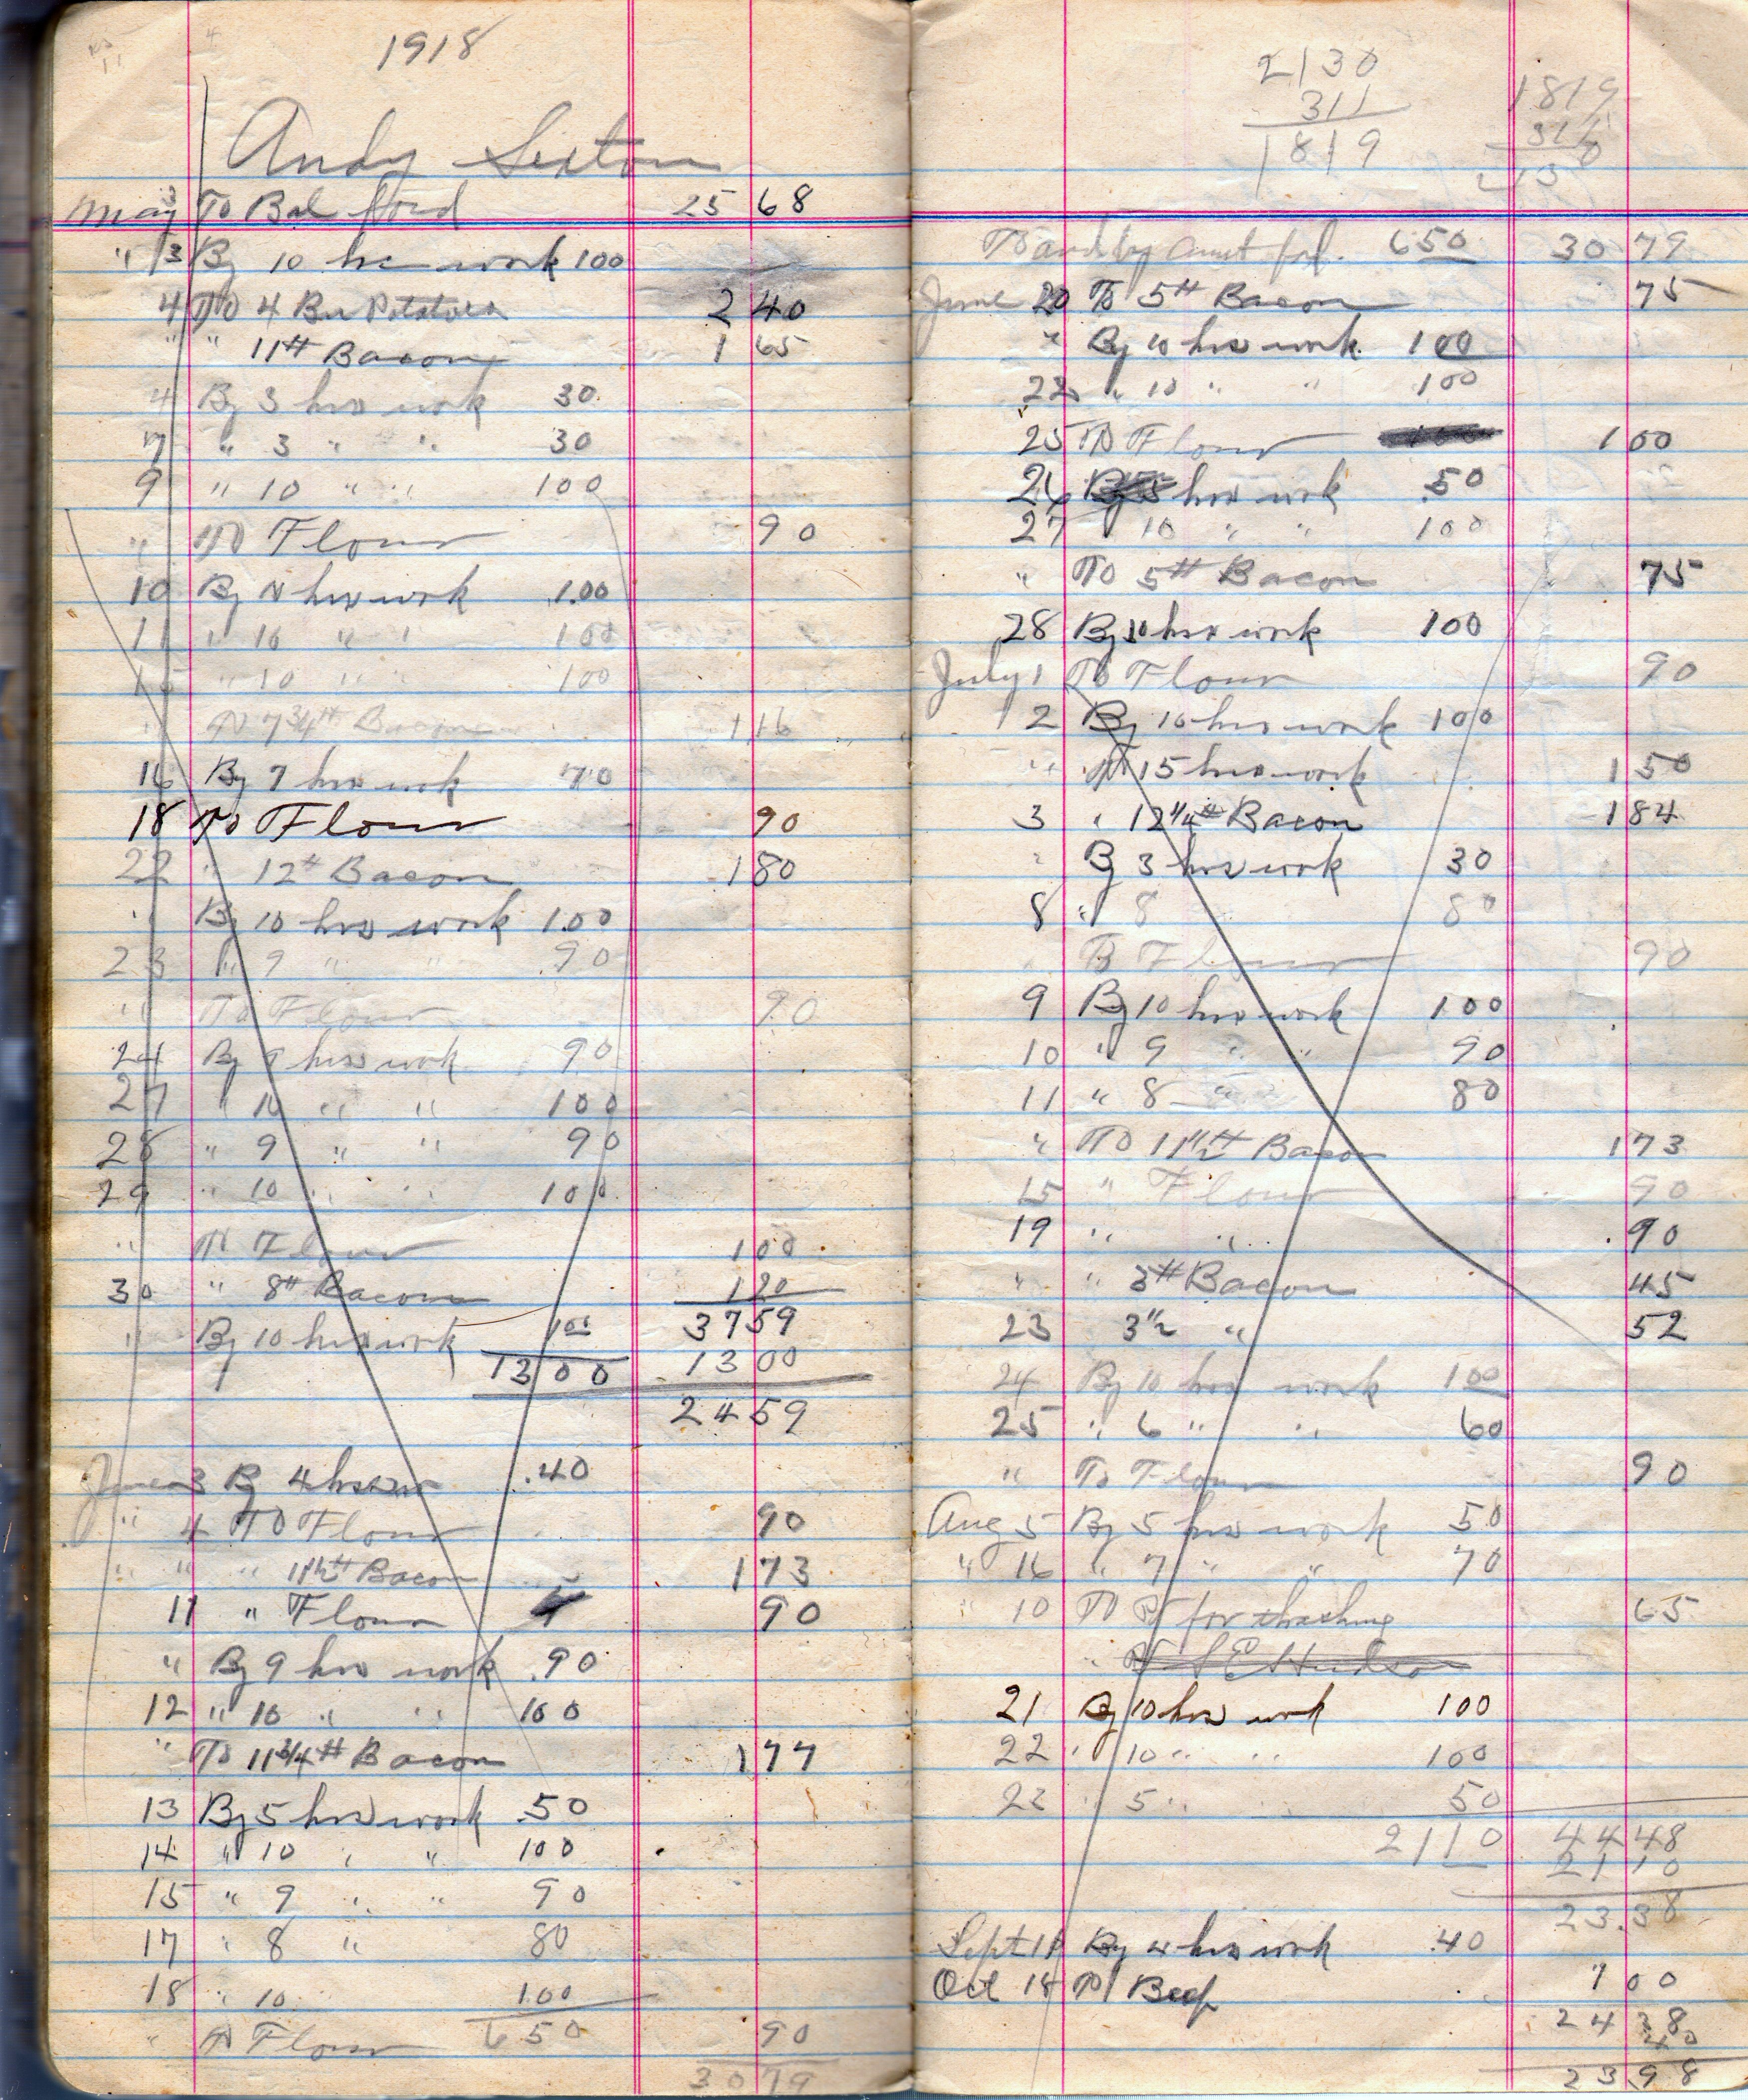 1918
Andy Sexton
May 3 To Bal ford 25 68
" 3 By 10 hrs work 100
4 To 4 Bu Potatoes 2 40
" " 11# Bacon 1 65
4 By 3 hrs work 30
7 " 3 " " 30
9 " 10 " " 100
" To Flour 90
10 By 10 hrs work 1.00
11 " 10 " " 100
15 " 10 " " 100
" To 7 3/4# Bacon 1 16
16 By 7 hrs work 70
18 To Flour 90
22 " 12# Bacon 1 80
" By 10 hrs work 1.00
23 " 9 " " 90
" To Flour 90
24 By 9 hrs work 90
27 " 10 " " 100
28 " 9 " " 90
29 " 10 " " 100
" To Flour 1 00
30 " 8# Bacon 1 20
37 59
" By 10 hrs work 100
13 00 13 00
24 59
June 3 By 4 hrs .40
" 4 To Flour 90
" " " 11 1/2# Bacon 1 73
11 " Flour 90
" By 9 hrs work .90
12 " 10 " " 100
" To 11 3/4# Bacon 1 77
13 By 5 hrs work .50
14 " 10 " " 100
15 " 9 " " 90
17 " 8 " 80
18 " 10 1.00
" To Flour 650 90
30 79
2130
311
1819
1819
To and by amt fod. 650 30 79
June 20 To 5# Bacon 75
" By 10 hrs work 100
22 " 10 " " 100
25 To Flour 1 00
26 By 5 hrs work .50
27 10 " " 100
" To 5# Bacon 75
28 By 10 hrs work 100
July 1 To Flour 90
2 By 10 hrs work 100
" To 15 hrs work 1 50
3 " 12 1/4# Bacon 1 84
" By 3 hrs work 30
8 " 8 80
" To Flour 90
9 By 10 hrs work 100
10 " 9 " " 90
11 " 8 " 80
" To 11 1/2# Bacon 1 73
15 " Flour 90
19 " " .90
" " 3# Bacon 45
23 3 1/2 " 52
24 By 10 hrs work 100
25 " 6 " " 60
" To Flour 90
Aug 5 By 5 hrs work 50
" 16 " 7 " " 70
" 10 To for thrashing 65
" S E Hudson
21 By 10 hrs work 100
22 " 10 " " 100
23 " 5 " 50
2110 44 48
21 10
23.38
Sept 11 By 4 hrs work .40
Oct 18 To Beef 1 00
24 38
40
23 98